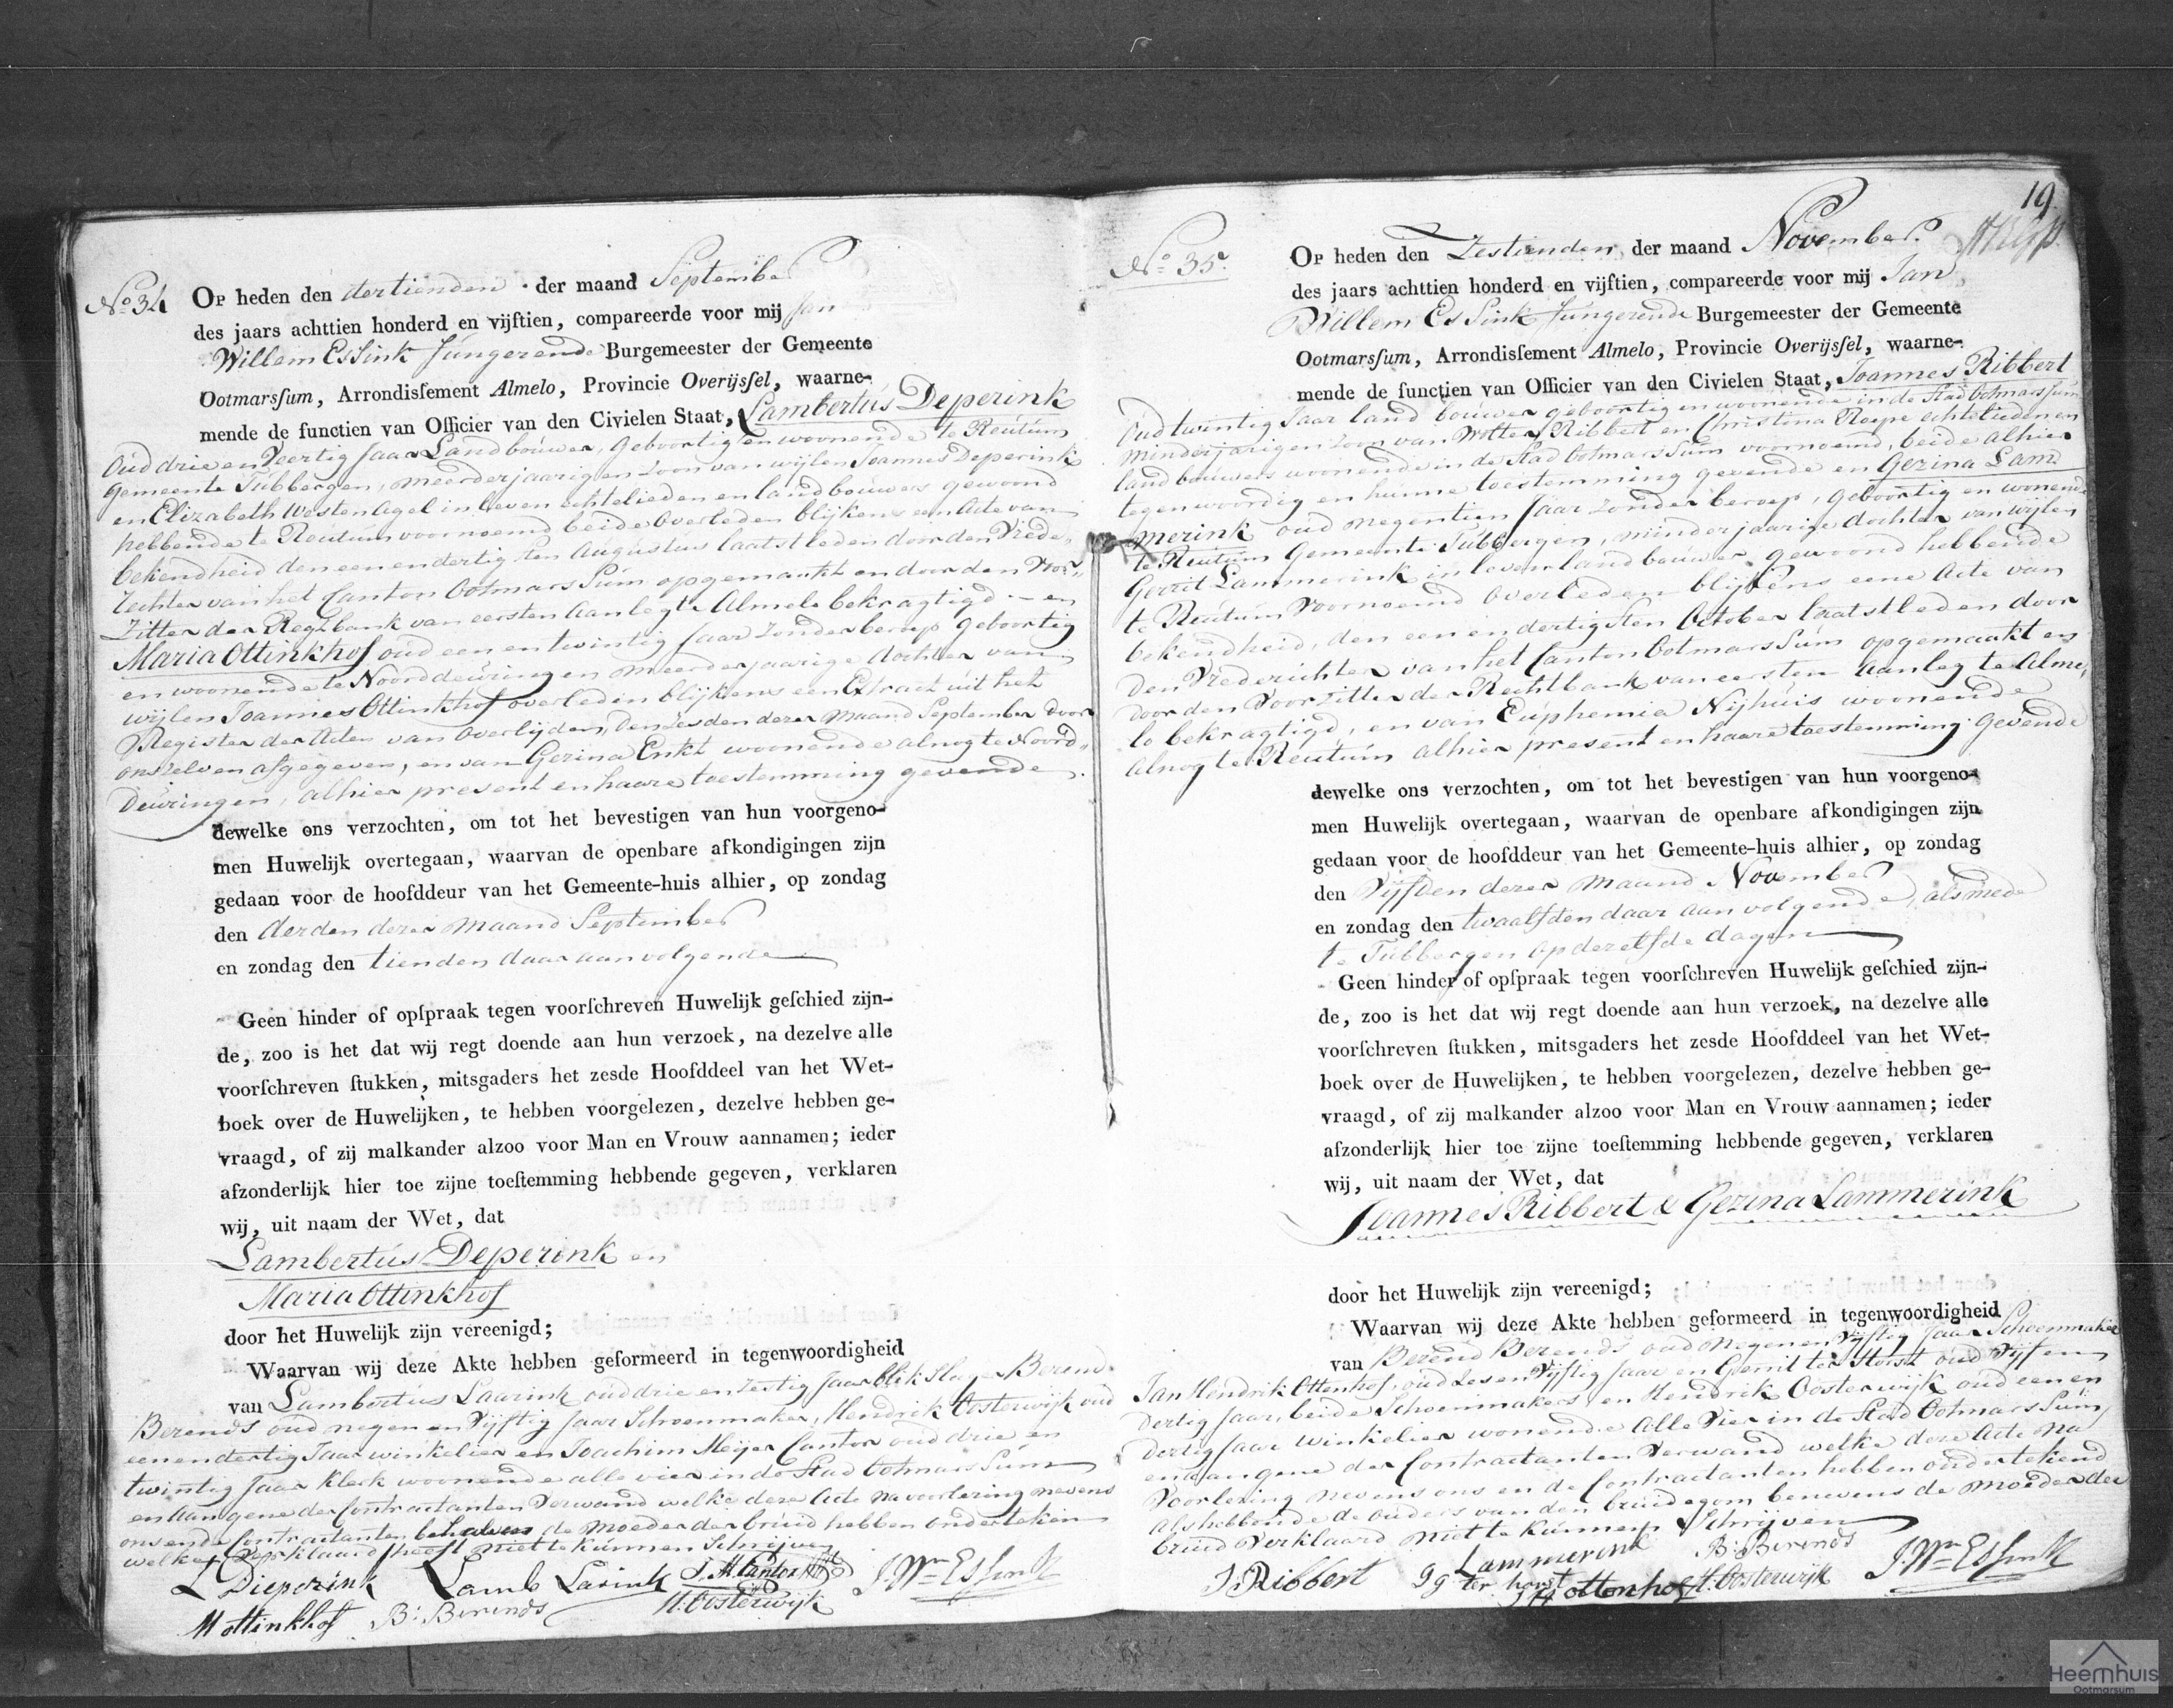 No. 34
Op heden den dertienden der maand September
des jaars achttien honderd en vijftien, compareerde voor mij Jan
Willem Essink fungerende Burgemeester der Gemeente
Ootmarsſum, Arrondisſement Almelo, Provincie Overijsſel, waarne-
mende de functien van Officier van den Civielen Staat, Lambertus Deperink
Oud drie en Veertig Jaar Landbouwer, geboortig en woonende te Reutum
Gemeente Tubbergen, meerderjaarigen zoon van wijlen Joannes Deperink
en Elizabeth Westenagel in leven echtelieden en landbouwers gewoond
hebbende te Reutum voornoemd beide Overleden blijkens een Acte van
bekendheid den een en dertigsten Augustus laatstleden door den Vrede-
rechter van het Canton Ootmarssum opgemaakt en door den Voor-
zitter der Regtbank van eersten Aanleg te Almelo bekragtigd - en
Maria Ottinkhof oud een en twintig Jaar zonder beroep geboortig
en woonende te Noorddeuringen meerderjaarige dochter van
wijlen Joannes Ottinkhof overleden blijkens een Extract uit het
Register der Acten van Overlijden, den zesden dezer Maand September door
ons zelven afgegeven, en van Gezina Enkt woonende alnog te Noord-
Deuringen, alhier present en haare toestemming gevende
dewelke ons verzochten, om tot het bevestigen van hun voorgeno-
men Huwelijk overtegaan, waarvan de openbare afkondigingen zijn
gedaan voor de hoofddeur van het Gemeente-huis alhier, op zondag
den derden dezer Maand September
en zondag den tienden daar aan volgende
Geen hinder of opſpraak tegen voorſchreven Huwelijk geſchied zijn-
de, zoo is het dat wij regt doende aan hun verzoek, na dezelve alle
voorſchreven ſtukken, mitsgaders het zesde Hoofddeel van het Wet-
boek over de Huwelijken, te hebben voorgelezen, dezelve hebben ge-
vraagd, of zij malkander alzoo voor Man en Vrouw aannamen; ieder
afzonderlijk hier toe zijne toeſtemming hebbende gegeven, verklaren
wij, uit naam der Wet, dat
Lambertus Deperink en
Maria Ottinkhof
door het Huwelijk zijn vereenigd;
Waarvan wij deze Akte hebben geformeerd in tegenwoordigheid
van Lambertus Laurink oud drie en zestig Jaar blikslager Berend
Berends oud negen en Vijftig Jaar Schoenmaker, Hendrik Oosterwijk oud
een en dertig Jaar winkelier en Joachim Meijer Cantor oud drie en
twintig Jaar Klerk woonende alle vier in de Stad Ootmarssum
en aan gene der Contractanten Verwand welke deze Acte na voorlezing nevens
ons en de Contractanten behalven de Moeder der bruid hebben ondertekend
welke Verklaard heeft niet te kunnen Schrijven
L Dieperink Lamb Larink J. M. Cantor J. Wm Essink
M ottinkhof B: Berends H. Oosterwijk
19
No. 35
Op heden den Zestienden der maand November
des jaars achttien honderd en vijftien, compareerde voor mij Jan
Willem Essink fungerende Burgemeester der Gemeente
Ootmarsſum, Arrondisſement Almelo, Provincie Overijsſel, waarne-
mende de functien van Officier van den Civielen Staat, Joannes Ribbert
Oud twintig Jaar landbouwer geboortig en woonende in de Stad Ootmarssum
Minderjarigen zoon van Wolter Ribbert en Christina Roepe echtelieden en
landbouwers woonende in de Stad Ootmarssum voornoemd, beide alhier
tegenwoordig en hunne toestemming gevende en Gezina Lam-
merink oud Negentien Jaar zonder beroep, geboortig en wonende
te Reutum Gemeente Tubbergen, minderjaarige dochter van wijlen
Gerrit Lammerink in leven landbouwer gewoond hebbende
te Reutum Voornoemd Overleden blijkens eene Acte van
bekendheid, den een en dertigsten October laatstleden door
den Vrederichter van het Canton Ootmarssum opgemaakt en
door den Voorzitter der Rechtbank van eersten aanleg te Alme-
lo bekragtigd, en van Euphemia Nijhuis woonende
alnog te Reutum alhier present en haare toestemming gevende
dewelke ons verzochten, om tot het bevestigen van hun voorgeno-
men Huwelijk overtegaan, waarvan de openbare afkondigingen zijn
gedaan voor de hoofddeur van het Gemeente-huis alhier, op zondag
den Vijfden dezer Maand November
en zondag den twaalfden daar aan volgende, alsmede
te Tubbergen op dezelfde dagen
Geen hinder of opſpraak tegen voorſchreven Huwelijk geſchied zijn-
de, zoo is het dat wij regt doende aan hun verzoek, na dezelve alle
voorſchreven ſtukken, mitsgaders het zesde Hoofddeel van het Wet-
boek over de Huwelijken, te hebben voorgelezen, dezelve hebben ge-
vraagd, of zij malkander alzoo voor Man en Vrouw aannamen; ieder
afzonderlijk hier toe zijne toeſtemming hebbende gegeven, verklaren
wij, uit naam der Wet, dat
Joannes Ribbert & Gezina Lammerink
door het Huwelijk zijn vereenigd;
Waarvan wij deze Akte hebben geformeerd in tegenwoordigheid
van Berend Berends oud Negen en Vijftig Jaar Schoenmaker
Jan Hendrik Ottenhof, oud zes en Vijftig Jaar en Gerrit ter Horst oud Vijf en
Dertig Jaar, beide Schoenmakers en Hendrik Oosterwijk oud een en
dertig Jaar Winkelier wonende Alle Vier in de Stad Ootmarssum,
en aan gene der Contractanten Verwand welke deze Acte na
Voorlezing nevens ons en de Contractanten hebben ondertekend
als hebbende de ouders van den bruidegom benevens de moeder der
bruid Verklaard niet te kunnen Schrijven
J: Ribbert G Lammerink B: Berends J. Wm Essink
g ter horst JH ottenhof H. Oosterwijk
Heemhuis
Ootmarsum